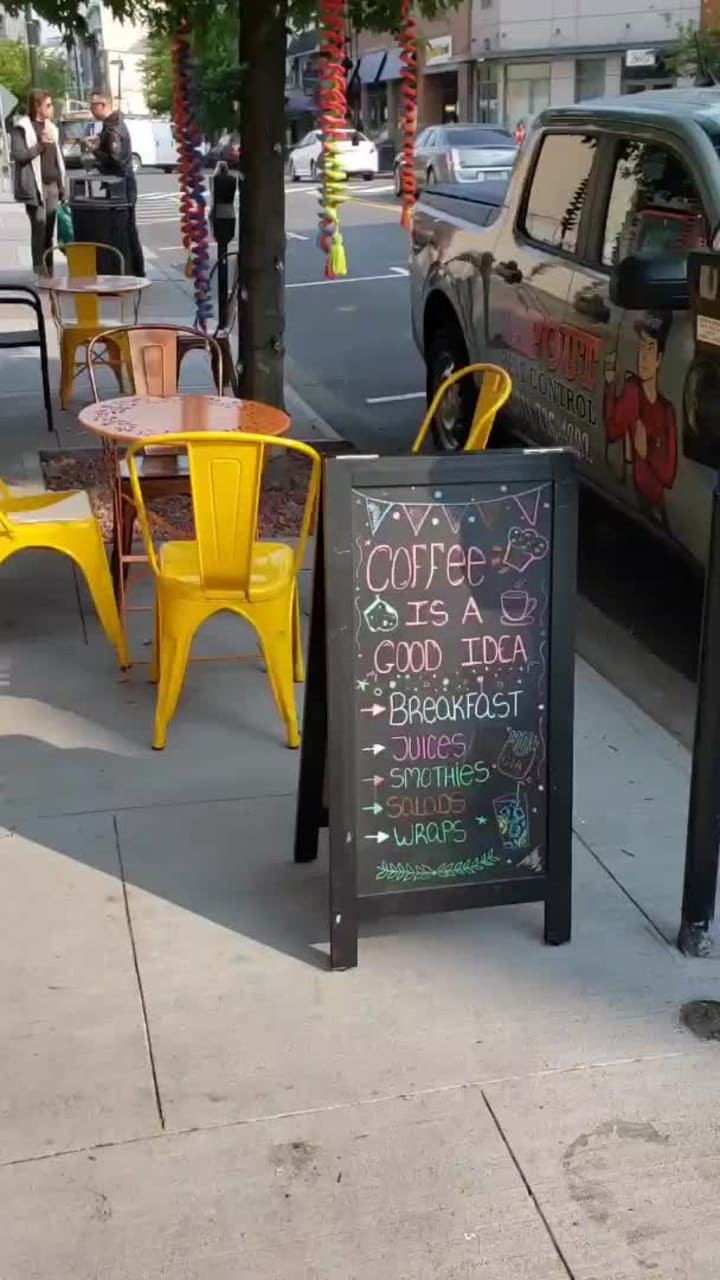 COFFEE
IS A
GOOD IDEA
BREAKFAST
JUICES
SMOTHIES
SALADS
WRAPS
CONTROL